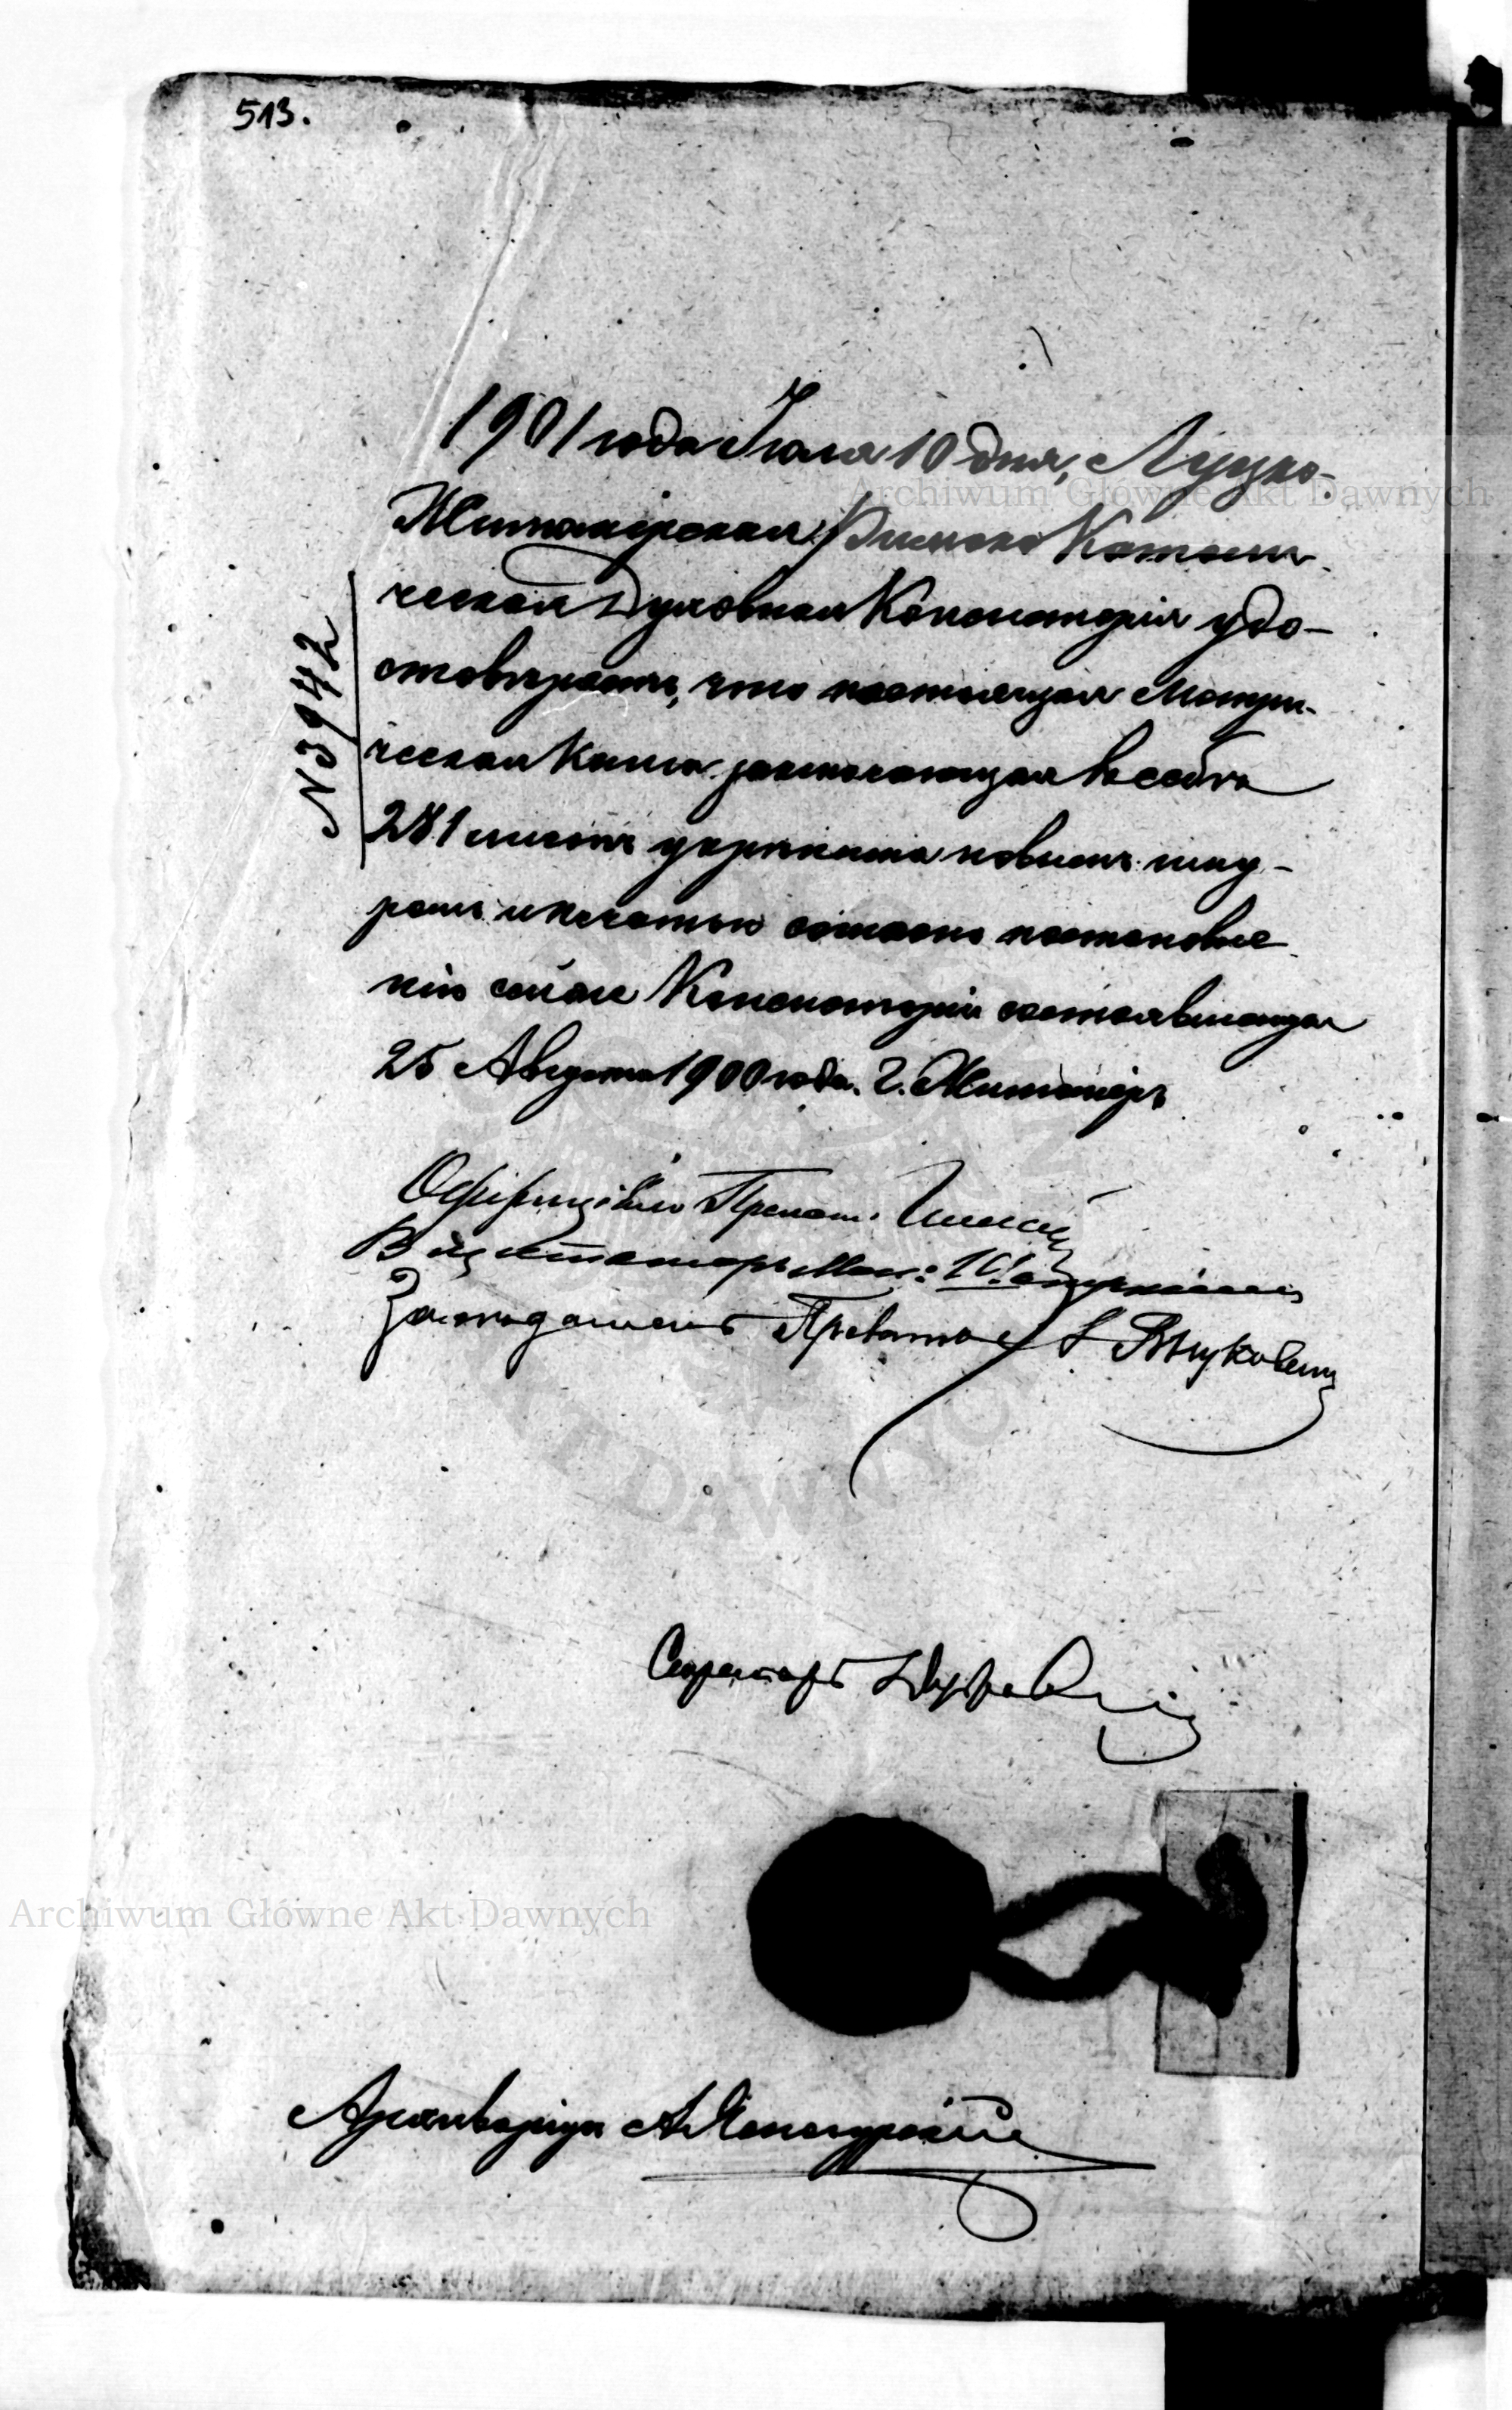 513.
1901 года Іюля 10 дня, Луцко-
Житомірская Римско Католи-
ческая Духовная Консисторія удо-
стовѣряетъ, что настоящая Метри-
ческая Книга заключающая въ себѣ
281 листъ укрѣплена новымъ шну-
ромъ и печатью согласно постановле-
нію сей же Консисторіи состоявшемуся
25 Августа 1900 года. г. Житоміръ
N 3942
Оффиціалъ Прелат.
Визитаторъ
Засѣдатель
Секретарь
Архиваріусъ
Archiwum Główne Akt Dawnych
Archiwum Główne Akt Dawnych
AKT DAWNYCH